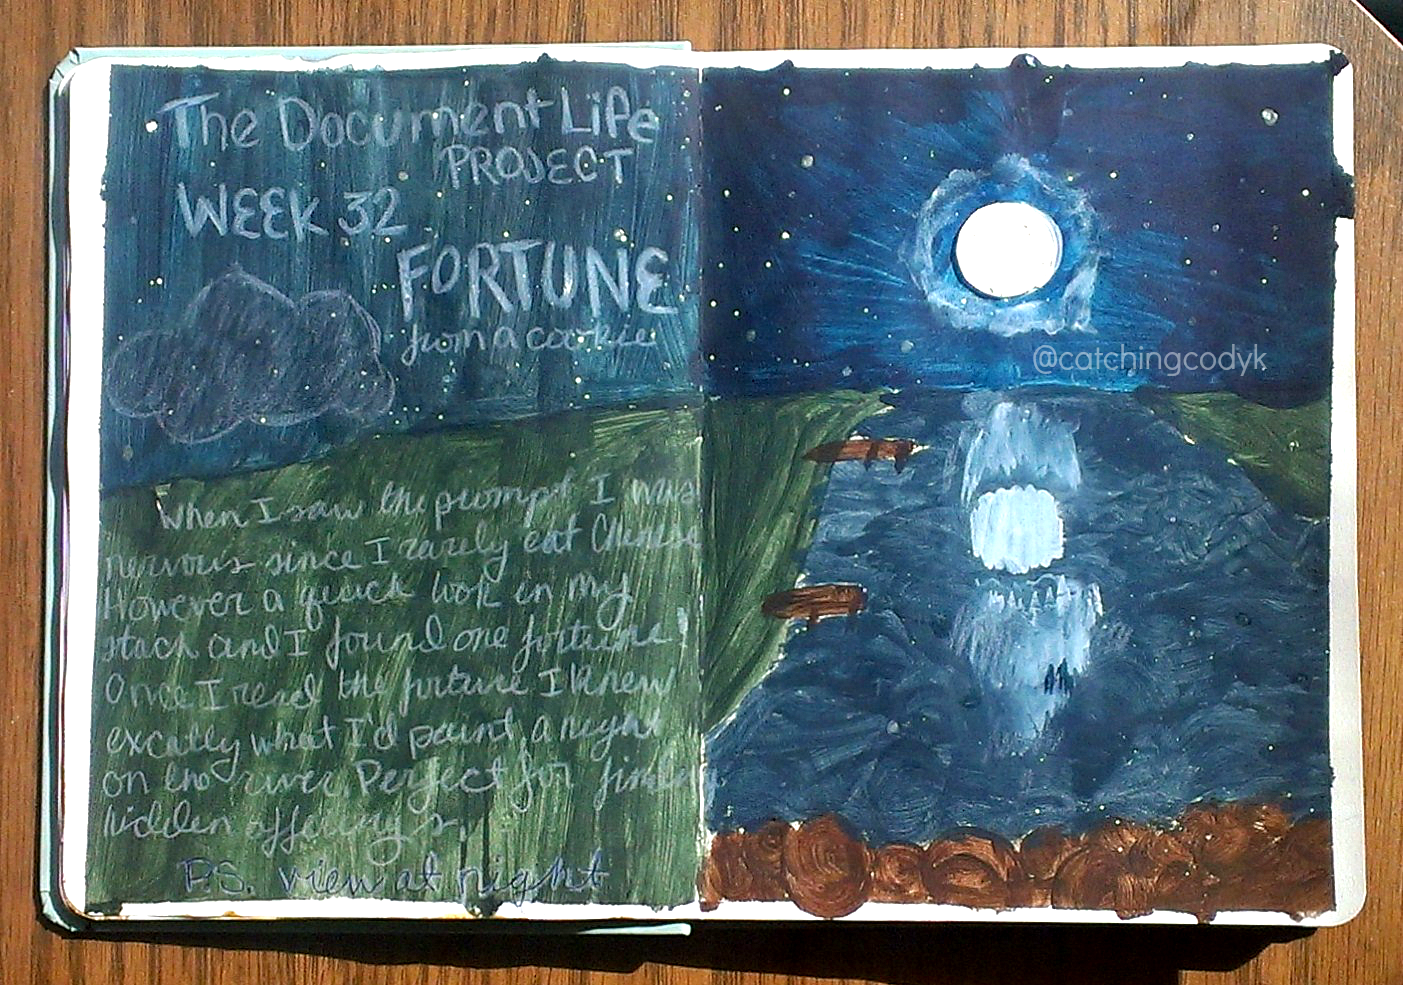 The Document Life
PROJECT
WEEK 32
FORTUNE
from a cookie
@catchingcodyk
When I saw the prompt I was
nervous since I rarely eat Chinese
However a quick look in my
stach and I found one fortune!
Once I read the fortune I knew
excatly what I'd paint, a night
on the river. Perfect for
hidden offerings.
P.S. view at night